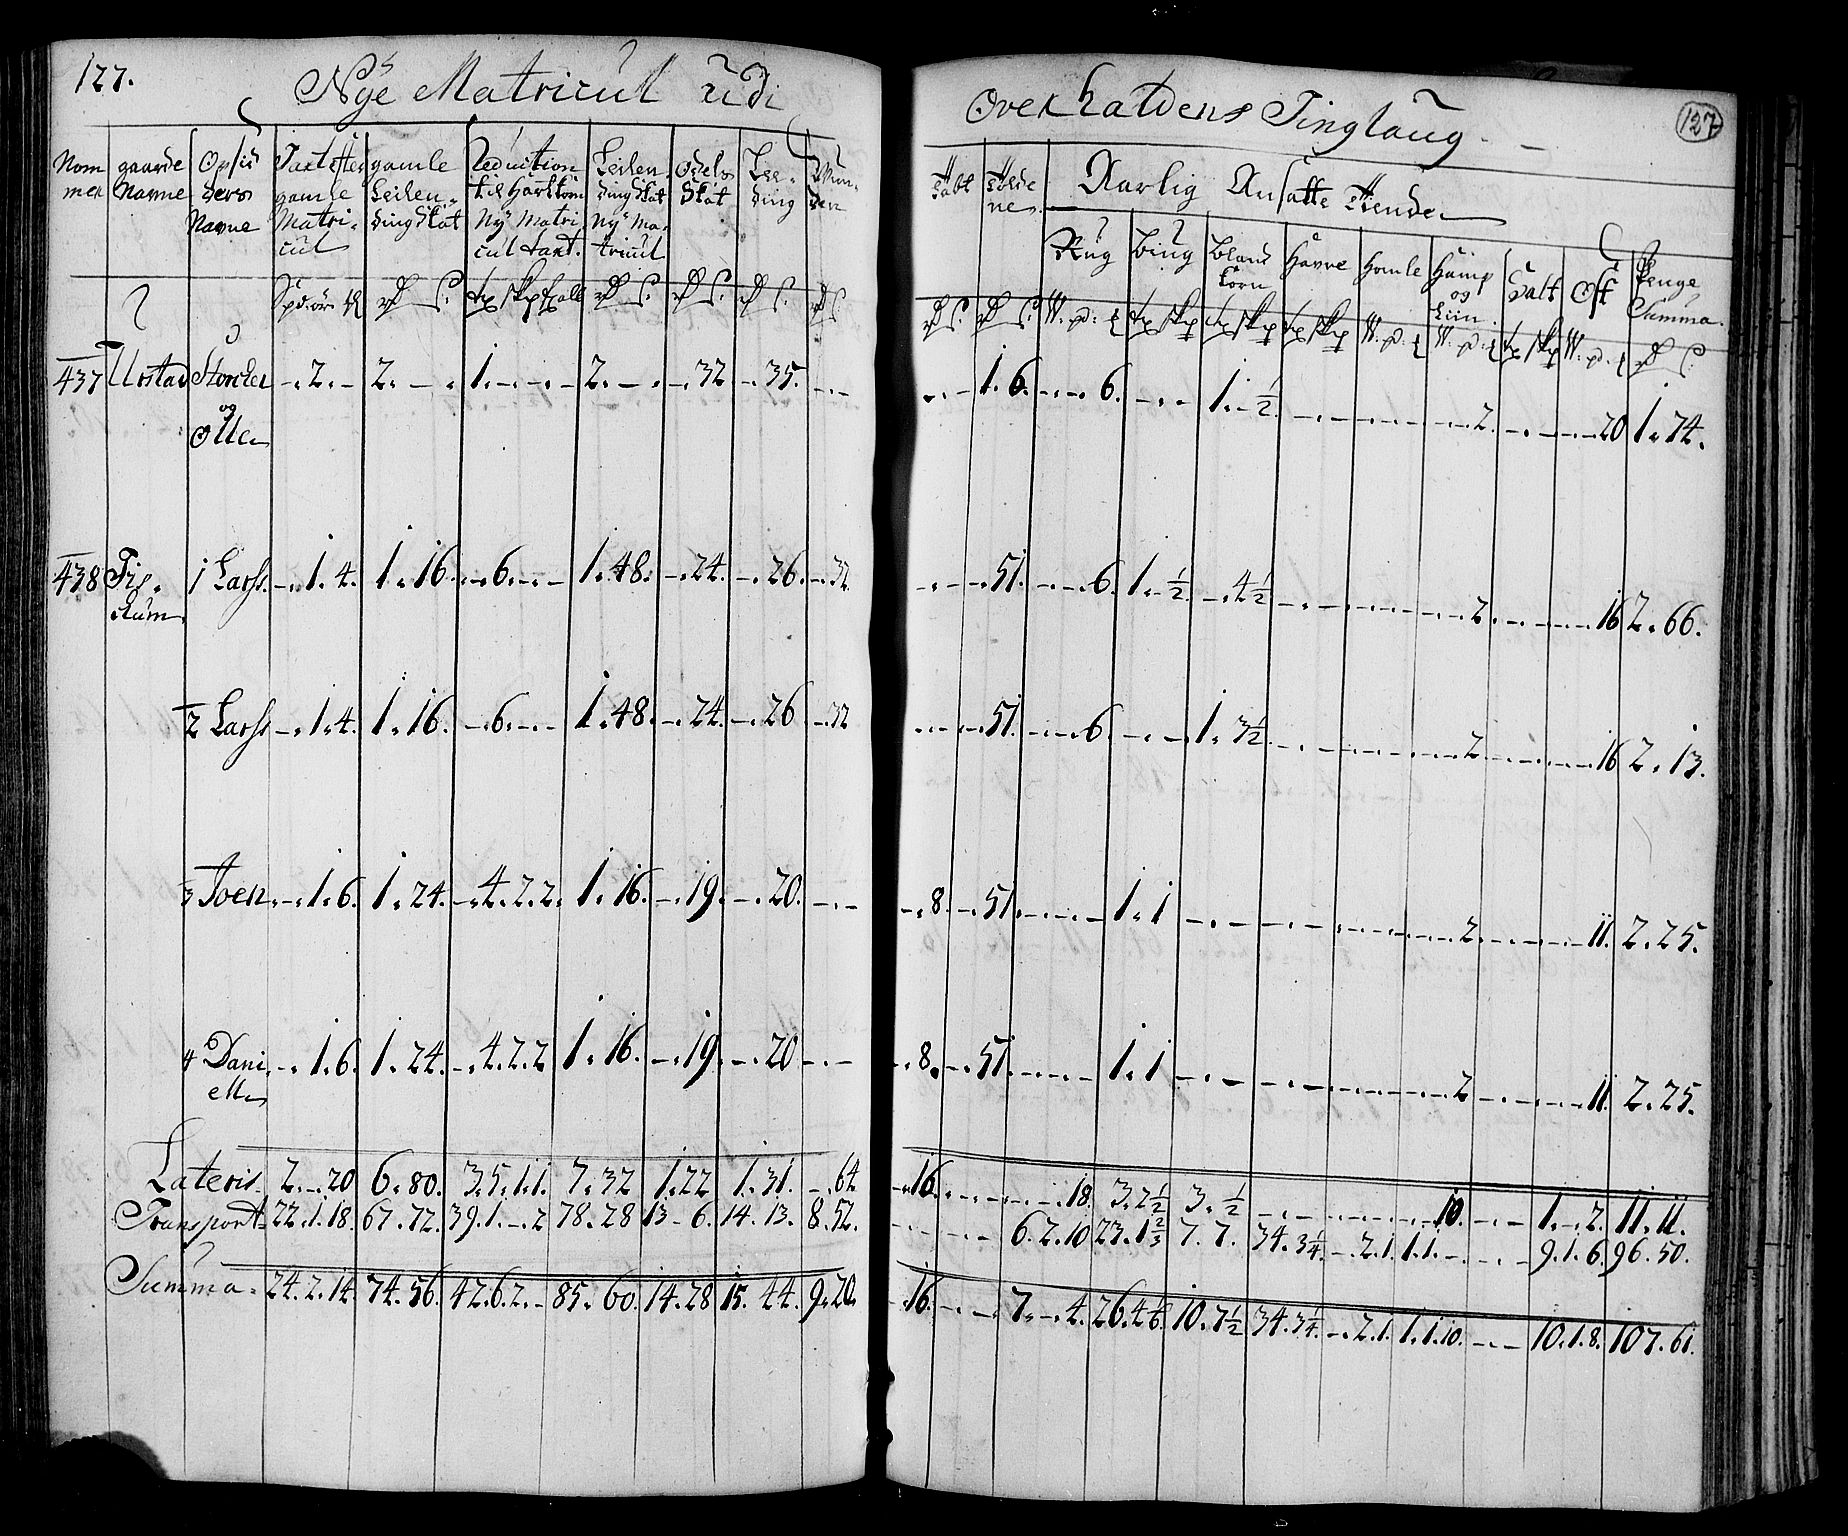 127.
Nÿe Matricul udi
Overhaldens Tinglaug
127
Nom
mer
gaarde
Navne
Opsid
ders
Navne
Taxt efter
gamle
Matri-
cul
gamle
Leilen-
dingskat
Reduction
til Hartkorn
Nÿ Matri-
cul taxt.
Leilen-
dingskat
Nÿ Ma-
tricul
Odels
Skat
Lee-
ding
Tolde
ne.
Aarlig Ansatte Tiender
Rug
Biug
Bland
korn
Havre
Homle
Hamp
og
Liin
Salt
Ost
Penge
Summa.
437 Urstad Storcher -.2.- 2. - . 1. -.-.- 2. - . -.32 -.35. -.-
og
Otte
-.- 1.6. -.-.6. -.- 1.-½. 2. 20 1.74.
438 Fis-
kum
1 Larss. -.1.4. 1.16. -.6.-.- 1.48. -.24. -.26. -.32
-.- -.51. -.-.6. 1.-½. -.4½ 2. 16 2.66.
2 Larss -.1.4. 1.16. -.6.-.- 1.48. -.24. -.26 -.32
-.- -.51. -.-.6. -.- 1.3½ 2. 16 2.13.
3 Joen -.1.6. 1.24. -.4.2.2. 1.16. -.19. -.20. -.-
-.8. -.51. -.-.- 1.1 -.- 2. 11. 2.25.
4 Dani
ell -.1.6. 1.24. -.4.2.2 1.16. -.19. -.20 -.-
-.8. -.51. -.-.- 1.1 -.- 2 11. 2.25.
Lateris 2.-.20 6.80. 3.5.1.1. 7.32 1.22 1.31. -.64
-.16. -.- -.-.18. 3.2½ 3.½ -.- 10. -.- 1.-.2. 11.11.
Transport 22.1.18. 67.72. 39.1.-.2 78.28 13-6. 14.13. 8.52.
-.- -.- 6.2.10 23.1⅔ 7.7. 34.3¼ -.2.1. 1.1.-. -.- 9.1.6. 96.50.
Summa. 24.2.14. 74.56. 42.6.2.- 85.60. 14.28 15.44. 9.20.
-.16. -.- 7.-.4. 26.4⅙ 10.7½ 34.3¼. -.2.1. 1.1.10. -.- 10.1.8. 107.61.